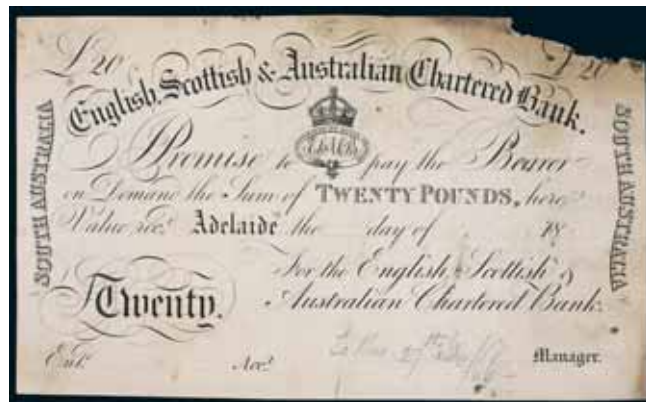 £ 20 £ 20
English, Scottish & Australian Chartered Bank.
SOUTH AUSTRALIA
SOUTH AUSTRALIA
Promise to pay the Bearer
on Demand the Sum of TWENTY POUNDS, here
Value recd. Adelaide the day of 18
For the English Scottish &
Twenty. Australian Chartered Bank.
Entd. Acct. Manager.